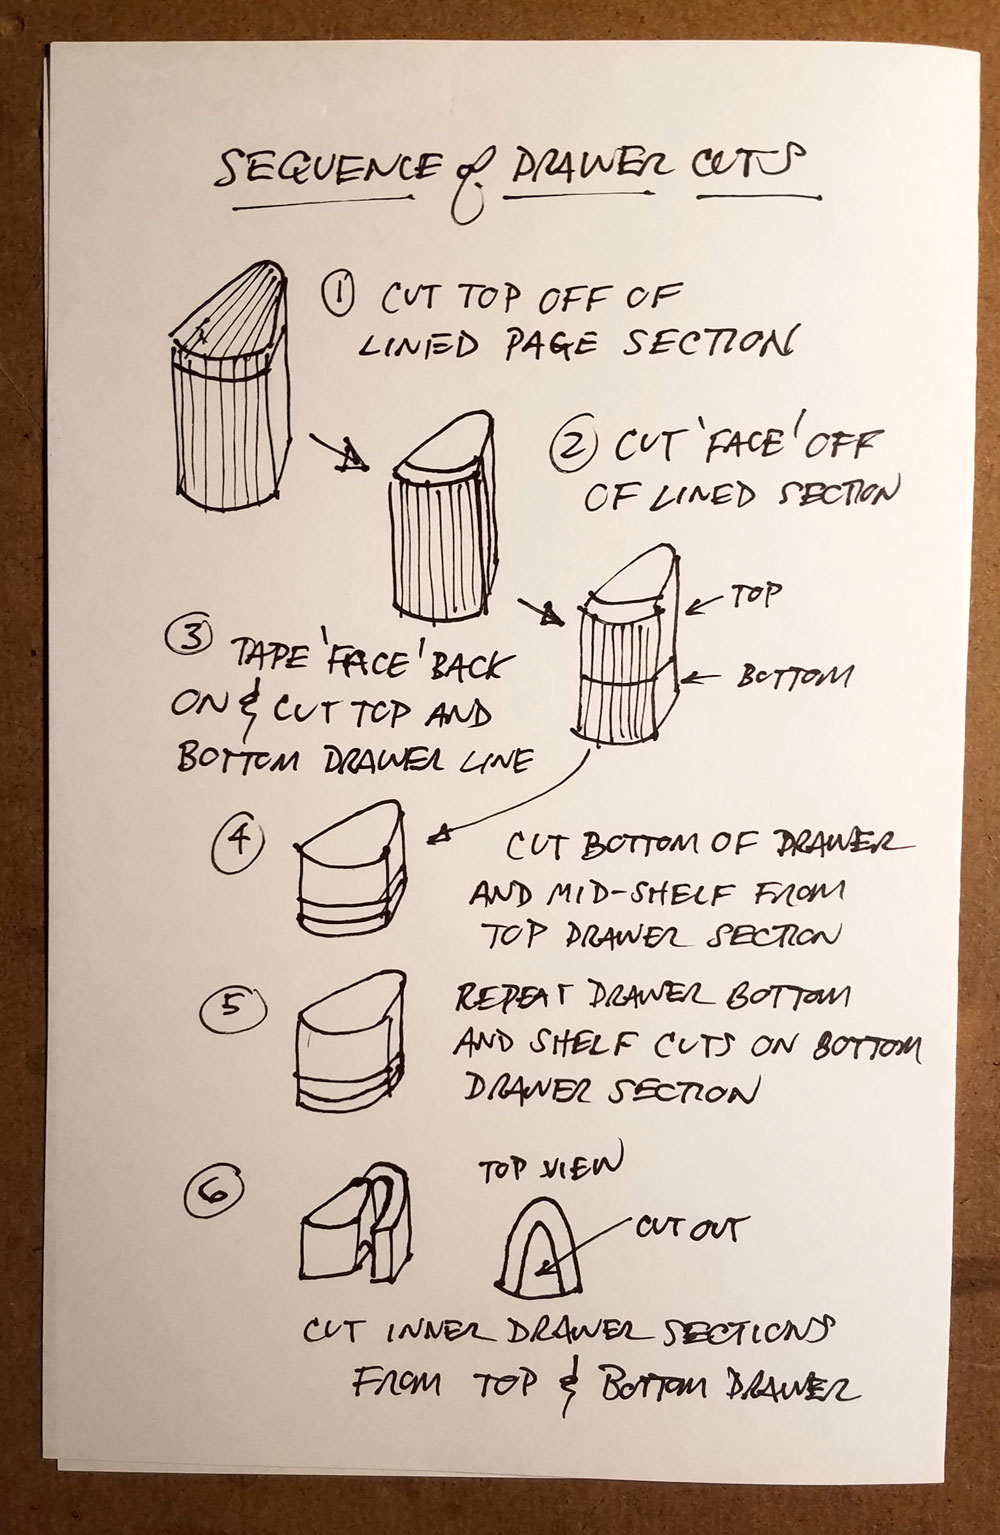 SEQUENCE of DRAWER CUTS
① CUT TOP OFF OF
LINED PAGE SECTION
② CUT 'FACE' OFF
OF LINED SECTION
TOP
BOTTOM
③ TAPE 'FACE' BACK
ON & CUT TOP AND
BOTTOM DRAWER LINE
④ CUT BOTTOM OF DRAWER
AND MID-SHELF FROM
TOP DRAWER SECTION
⑤ REPEAT DRAWER BOTTOM
AND SHELF CUTS ON BOTTOM
DRAWER SECTION
⑥ TOP VIEW
CUT OUT
CUT INNER DRAWER SECTIONS
FROM TOP & BOTTOM DRAWER